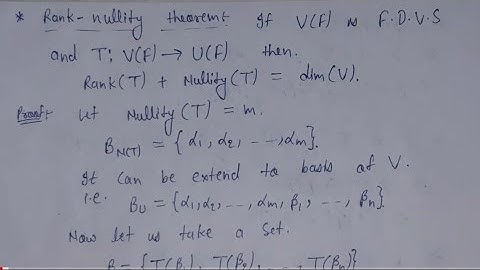 * Rank-nullity theorem:- If V(F) is F.D.V.S
and T: V(F) → U(F) then.
Rank(T) + Nullity(T) = dim(V).
Proof:- Let Nullity(T) = m.
B_N(T) = {α₁, α₂, ..., αm}.
It can be extend to basis of V.
i.e. B_U = {α₁, α₂, ..., αm, β₁, ..., βn}
Now let us take a set.
B = {T(β₁), T(β₂), ..., T(βn)}